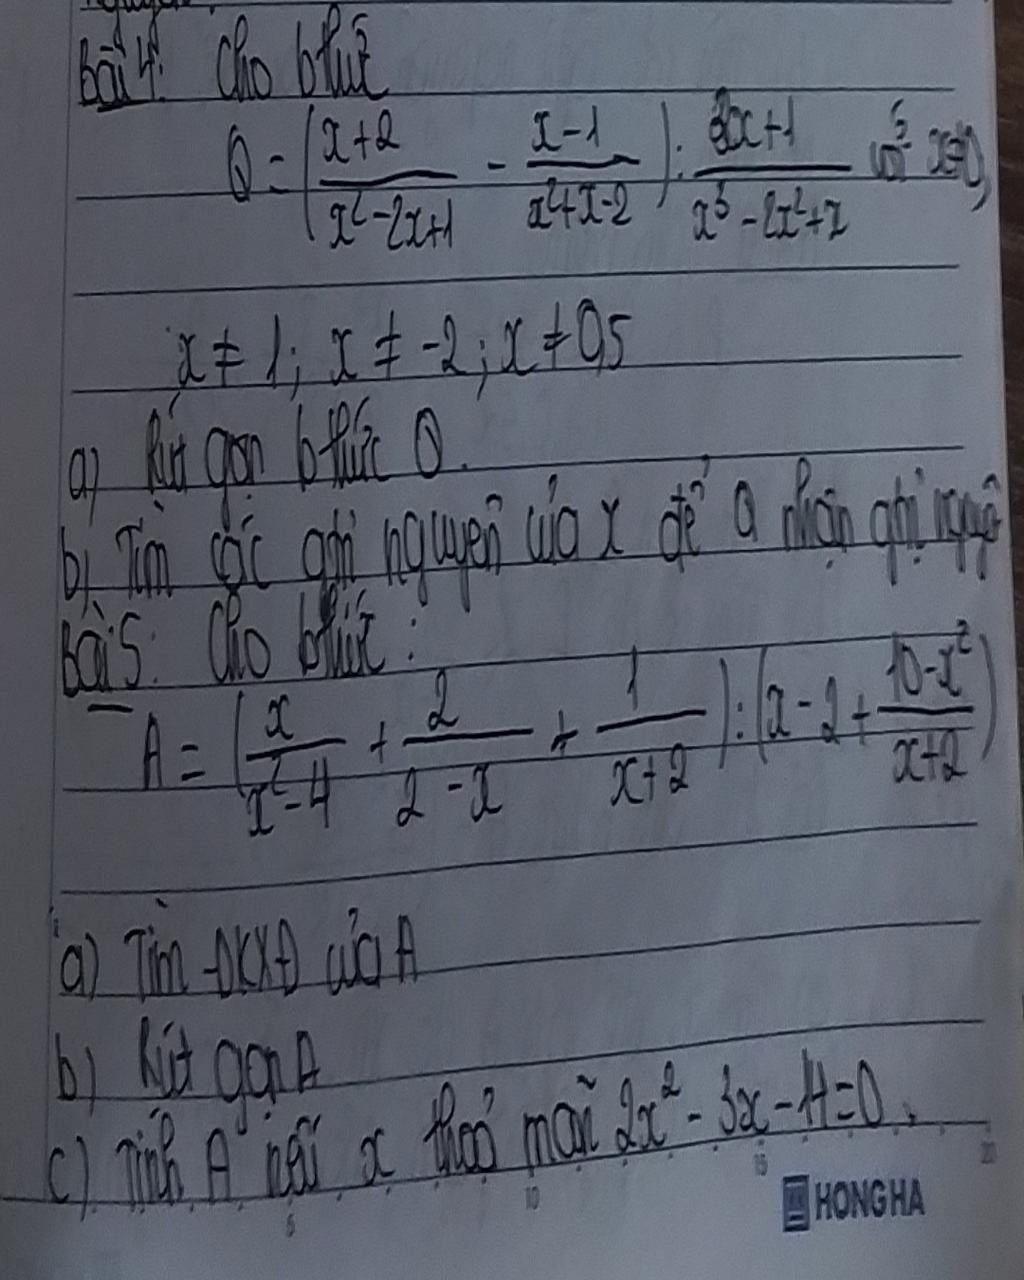 Bài 4: Cho bthức
Q = (x+2/x²-2x+1 - x-1/x²+x-2) : 2x+1/x³-2x²+x với x≠0,
x ≠ 1; x ≠ -2; x ≠ 0,5
a) Rút gọn bthức Q.
b) Tìm các gtrị nguyên của x để Q nhận gtrị nguyê
Bài 5: Cho bthức:
A = (x/x²-4 + 2/2-x + 1/x+2) : (x-2+10-x²/x+2)
a) Tìm ĐKXĐ của A
b) Rút gọn A
c) Tính A nếu x thoả mãn 2x² - 3x - 14=0.
5 10 15 20
HONG HA